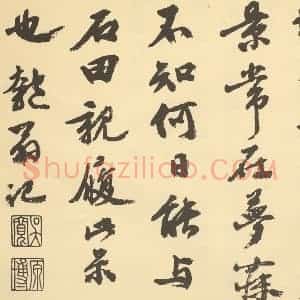 景常在夢寐
不知何日能與
石田親履此景
也匏翁記
吳原博
Shufaziliao.COM